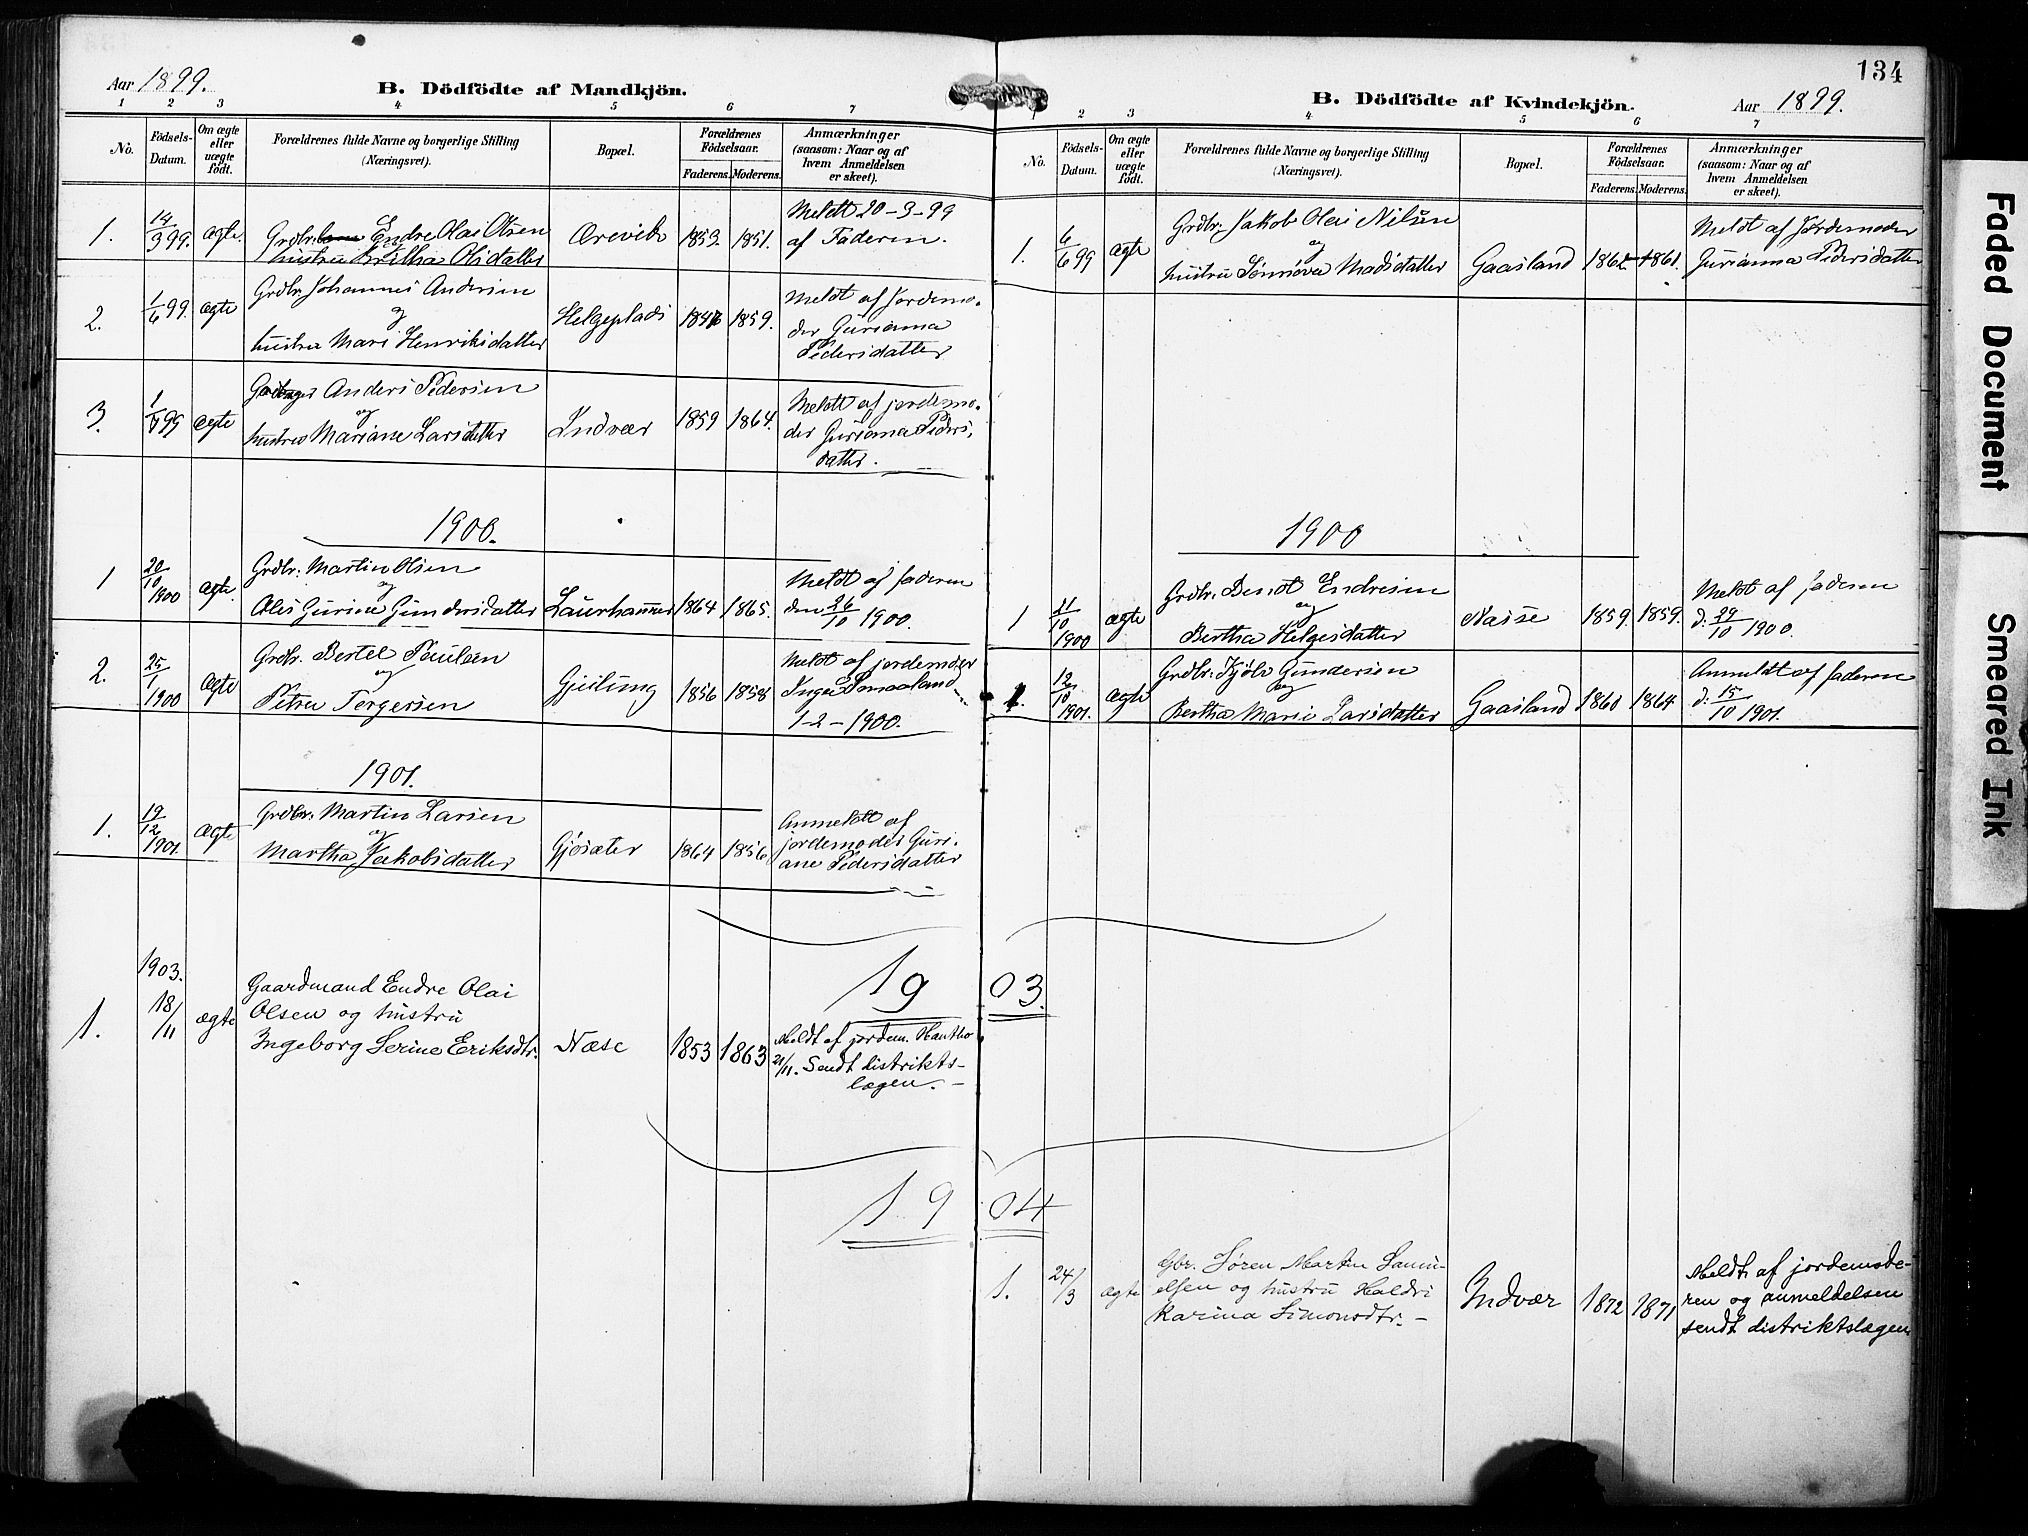 Aar 1899. B. Dödfödte af Mandkjön.
1 2 3 4 5 6 7
No. Födsels-Datum. Om ægte eller uægte födt. Forældrenes fulde Navne og borgerlige Stilling (Næringsvei). Bopæl. Forældrenes Födselsaar. Faderens. Moderens. Anmærkninger (saasom: Naar og af hvem Anmeldelsen er skeet).
1. 14/3 99. ægte. Grdbr. Endre Olai Olsen Ørevik 1853. 1851. Meldt 20-3-99
hustru Britha Olsdatter af Faderen.
2. 1/6 99. ægte Grdbr. Johannes Andersen
og Helgeplads 1859. Meldt af Jordemo-
hustru Mari Henriksdatter der Gurianna
Pedersdatter
3. 99 ægte Anders Pedersen
og Indvær 1859 1864. Meldt af jordemo-
hustru Mariane Larsdatter der Gurianna Peders-
datter.
1900.
1 20/10 1900 ægte. Grdbr. Martin Olsen
og 1864 1865. Meldt af faderen
Gurine Gundersdatter den 26/10 1900.
2. 25/1 1900 ægte Grdbr. Bertel Paulsen
og 1856 1858 Meldt af jordemoder
Petra Torgersen Inger Smaaland
1-2-1900.
1901.
1. 19/12 1901. ægte Grdbr. Martin Larsen
og Gjøsæter 1864 1856 Anmeldt af
Martha Jakobsdatter jordemoder Guri-
ane Pedersdatter
1903.
1. 18/11 ægte Gaardmand Endre Olai
Olsen og hustru
Ingeborg Serine Eriksdtr. Næse 1853 1863 Meldt af jordem.
21/11. Sendt distrikts-
lægen. -
134
B. Dödfödte af Kvindekjön. Aar 1899.
1 2 3 4 5 6 7
No. Födsels-Datum. Om ægte eller uægte födt. Forældrenes fulde Navne og borgerlige Stilling (Næringsvei). Bopæl. Forældrenes Födselsaar. Faderens. Moderens. Anmærkninger (saasom: Naar og af hvem Anmeldelsen er skeet).
1. 6/6 99 ægte Grdbr. Jakob Olai Nilsen
og Gaasland 1861. Meldt af Jordemoder
hustru Sønnøva Madsdatter Gurianna Pedersdatter
1900
1 11/10 1900 ægte Grdbr. Bendt Endresen
og 1859. 1859. Meldt af faderen
Bertha Helgesdatter d. 29/10 1900.
1. 12/10 1901. ægte Grdbr. Kjøl Gundersen
og Gaasland 1860 1864 Anmeldt af faderen
Bertha Marie Larsdatter d. 15/10 1901.
19 03.
19 04
1. 24/3 ægte Gbr. Søren Martin Samu-
elsen og hustru Haldri
Karina Simonsdtr. - Indvær 1872 1871 Meldt af jordemode-
ren og anmeldelsen
sendt distriktslægen.
Faded Document
Smeared Ink